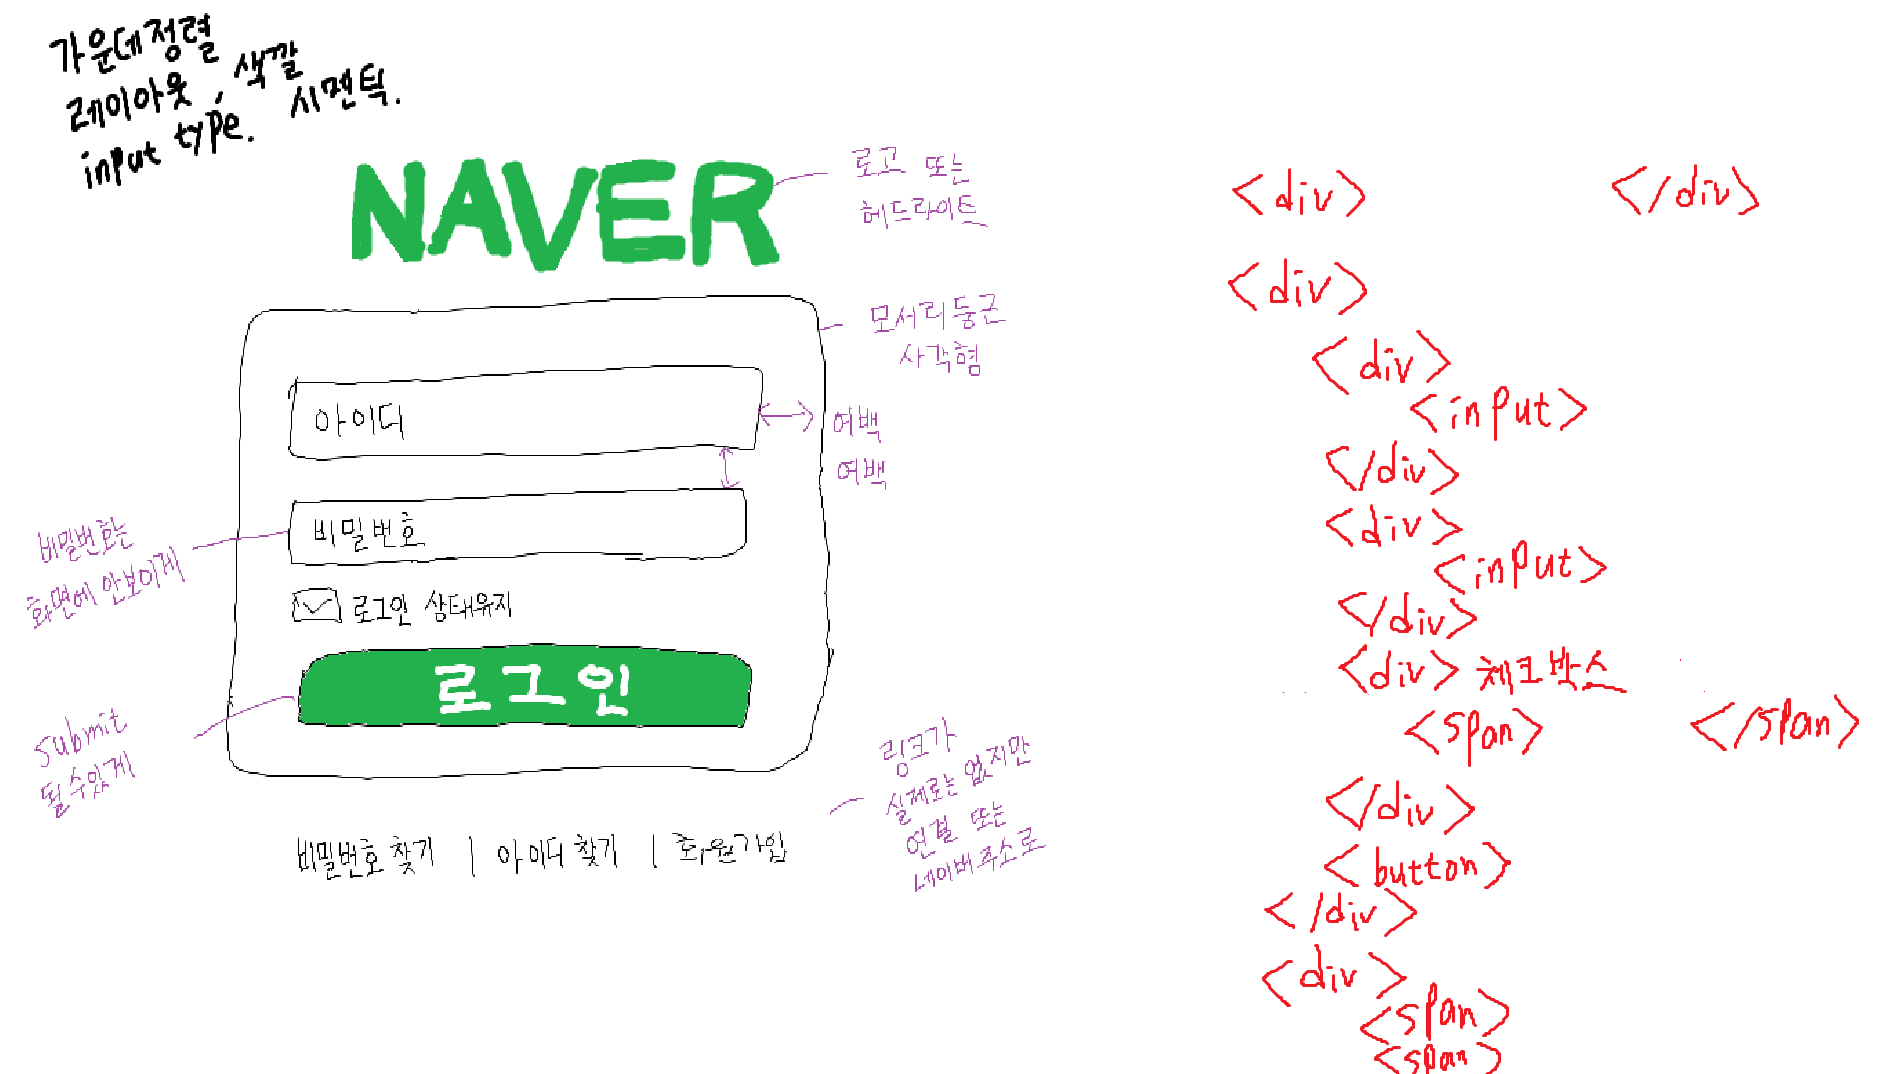 가운데정렬
레이아웃, 색깔
input type. 시멘틱.
NAVER
로고 또는
헤드라이트
모서리 둥근
사각형
아이디
여백
여백
비밀번호
비밀번호는
화면에 안보이게
로그인 상태유지
로그인
submit
될수있게
링크가
실제로는 없지만
연결 또는
네이버주소로
비밀번호 찾기 | 아이디 찾기 | 회원가입
<div> </div>
<div>
<div>
<input>
</div>
<div>
<input>
</div>
<div> 체크박스
<span> </span>
</div>
<button>
</div>
<div>
<span>
<span>